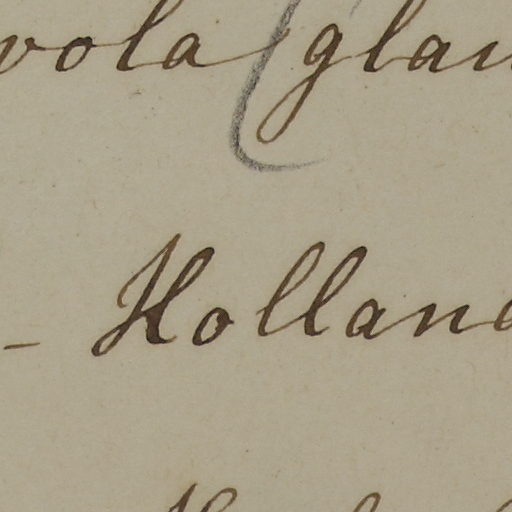 vola (glau
- Holland